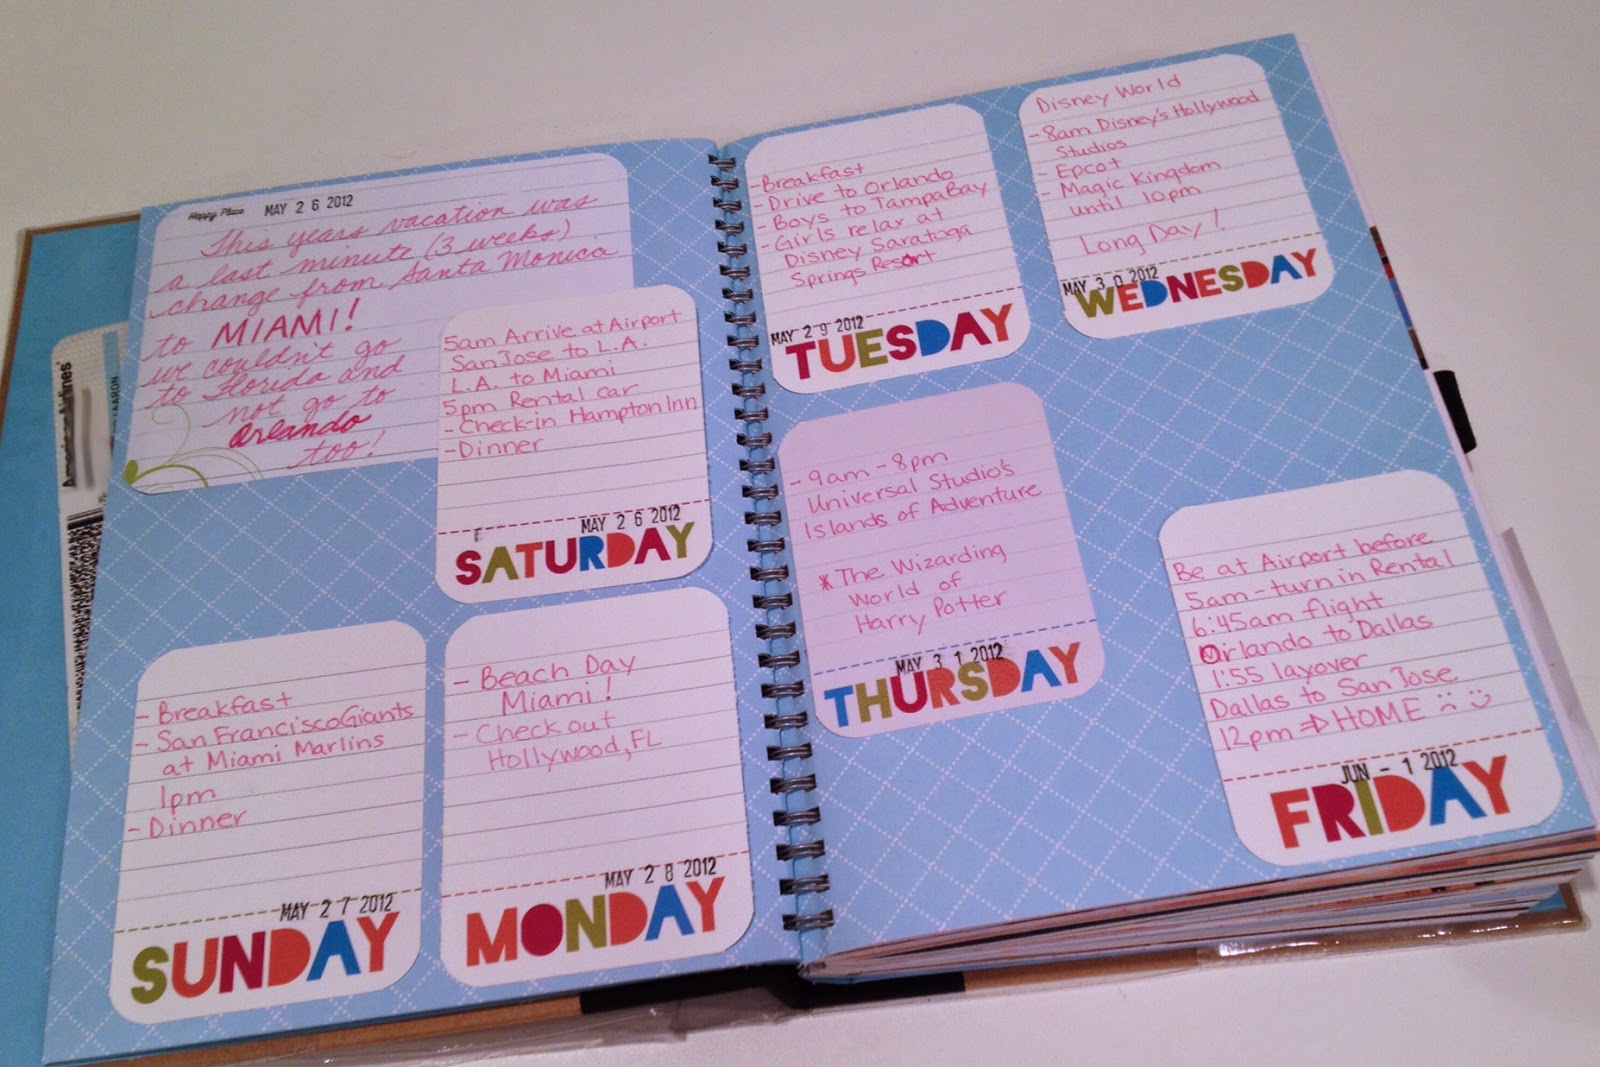 American Airlines
AARON
Happy Place MAY 2 6 2012
This years vacation was
a last minute (3 weeks)
change from Santa Monica
to MIAMI!
we couldn't go
to Florida and
not go to
Orlando
too!
5am Arrive at Airport
San Jose to L.A.
L.A. to Miami
5pm Rental car
- Check-in Hampton Inn
- Dinner
MAY 2 6 2012
SATURDAY
- Breakfast
- San Francisco Giants
at Miami Marlins
1pm
- Dinner
MAY 2 7 2012
SUNDAY
- Beach Day
Miami!
- Check out
Hollywood, FL
MAY 2 8 2012
MONDAY
- Breakfast
- Drive to Orlando
- Boys to Tampa Bay
- Girls relax at
Disney Saratoga
Springs Resort
MAY 2 9 2012
TUESDAY
Disney World
- 8am Disney's Hollywood
Studios
- Epcot
- Magic Kingdom
until 10pm
Long Day!
MAY 3 0 2012
WEDNESDAY
- 9am - 8pm
Universal Studio's
Islands of Adventure
* The Wizarding
World of
Harry Potter
MAY 3 1 2012
THURSDAY
Be at Airport before
5am - turn in Rental
6:45am flight
Orlando to Dallas
1:55 layover
Dallas to San Jose
12pm ⇒ HOME :( :)
JUN - 1 2012
FRIDAY